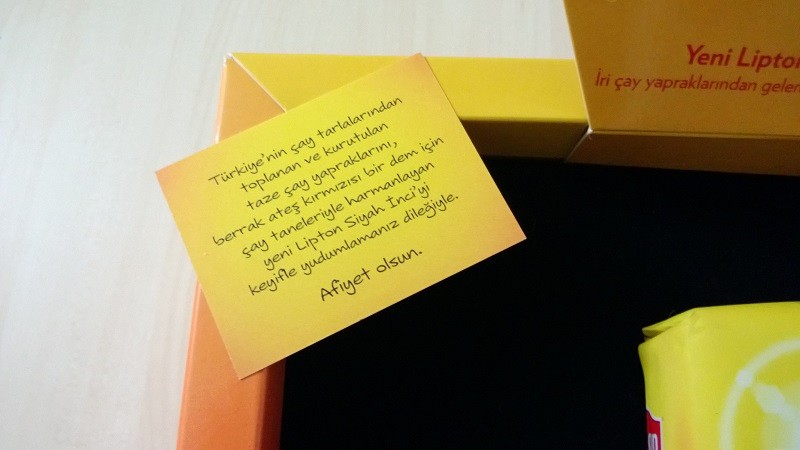 Türkiye'nin çay tarlalarından
toplanan ve kurutulan
taze çay yapraklarını,
berrak ateş kırmızısı bir dem için
çay taneleriyle harmanlayan
yeni Lipton Siyah İnci'yi
keyifle yudumlamanız dileğiyle.
Afiyet olsun.
Yeni Lipton
İri çay yapraklarından gelen